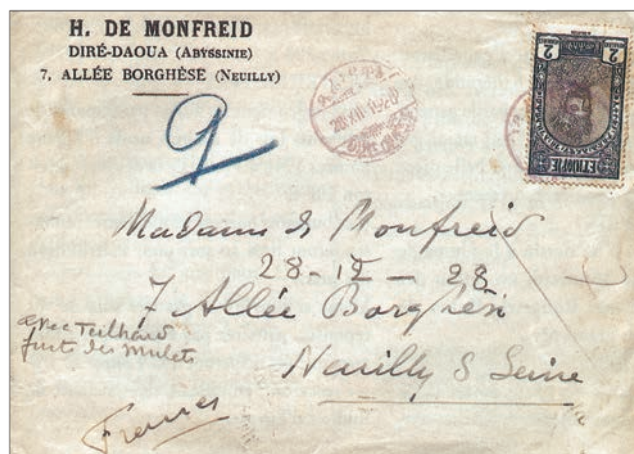 H. DE MONFREID
DIRÉ-DAOUA (ABYSSINIE)
7, ALLÉE BORGHÈSE (NEUILLY)
9
2
2
ETHIOPIE
Madame de Monfreid
28-12-28
7 Allée Borghèse
Neuilly S Seine
avec Teilhard
fuite des mulets
France